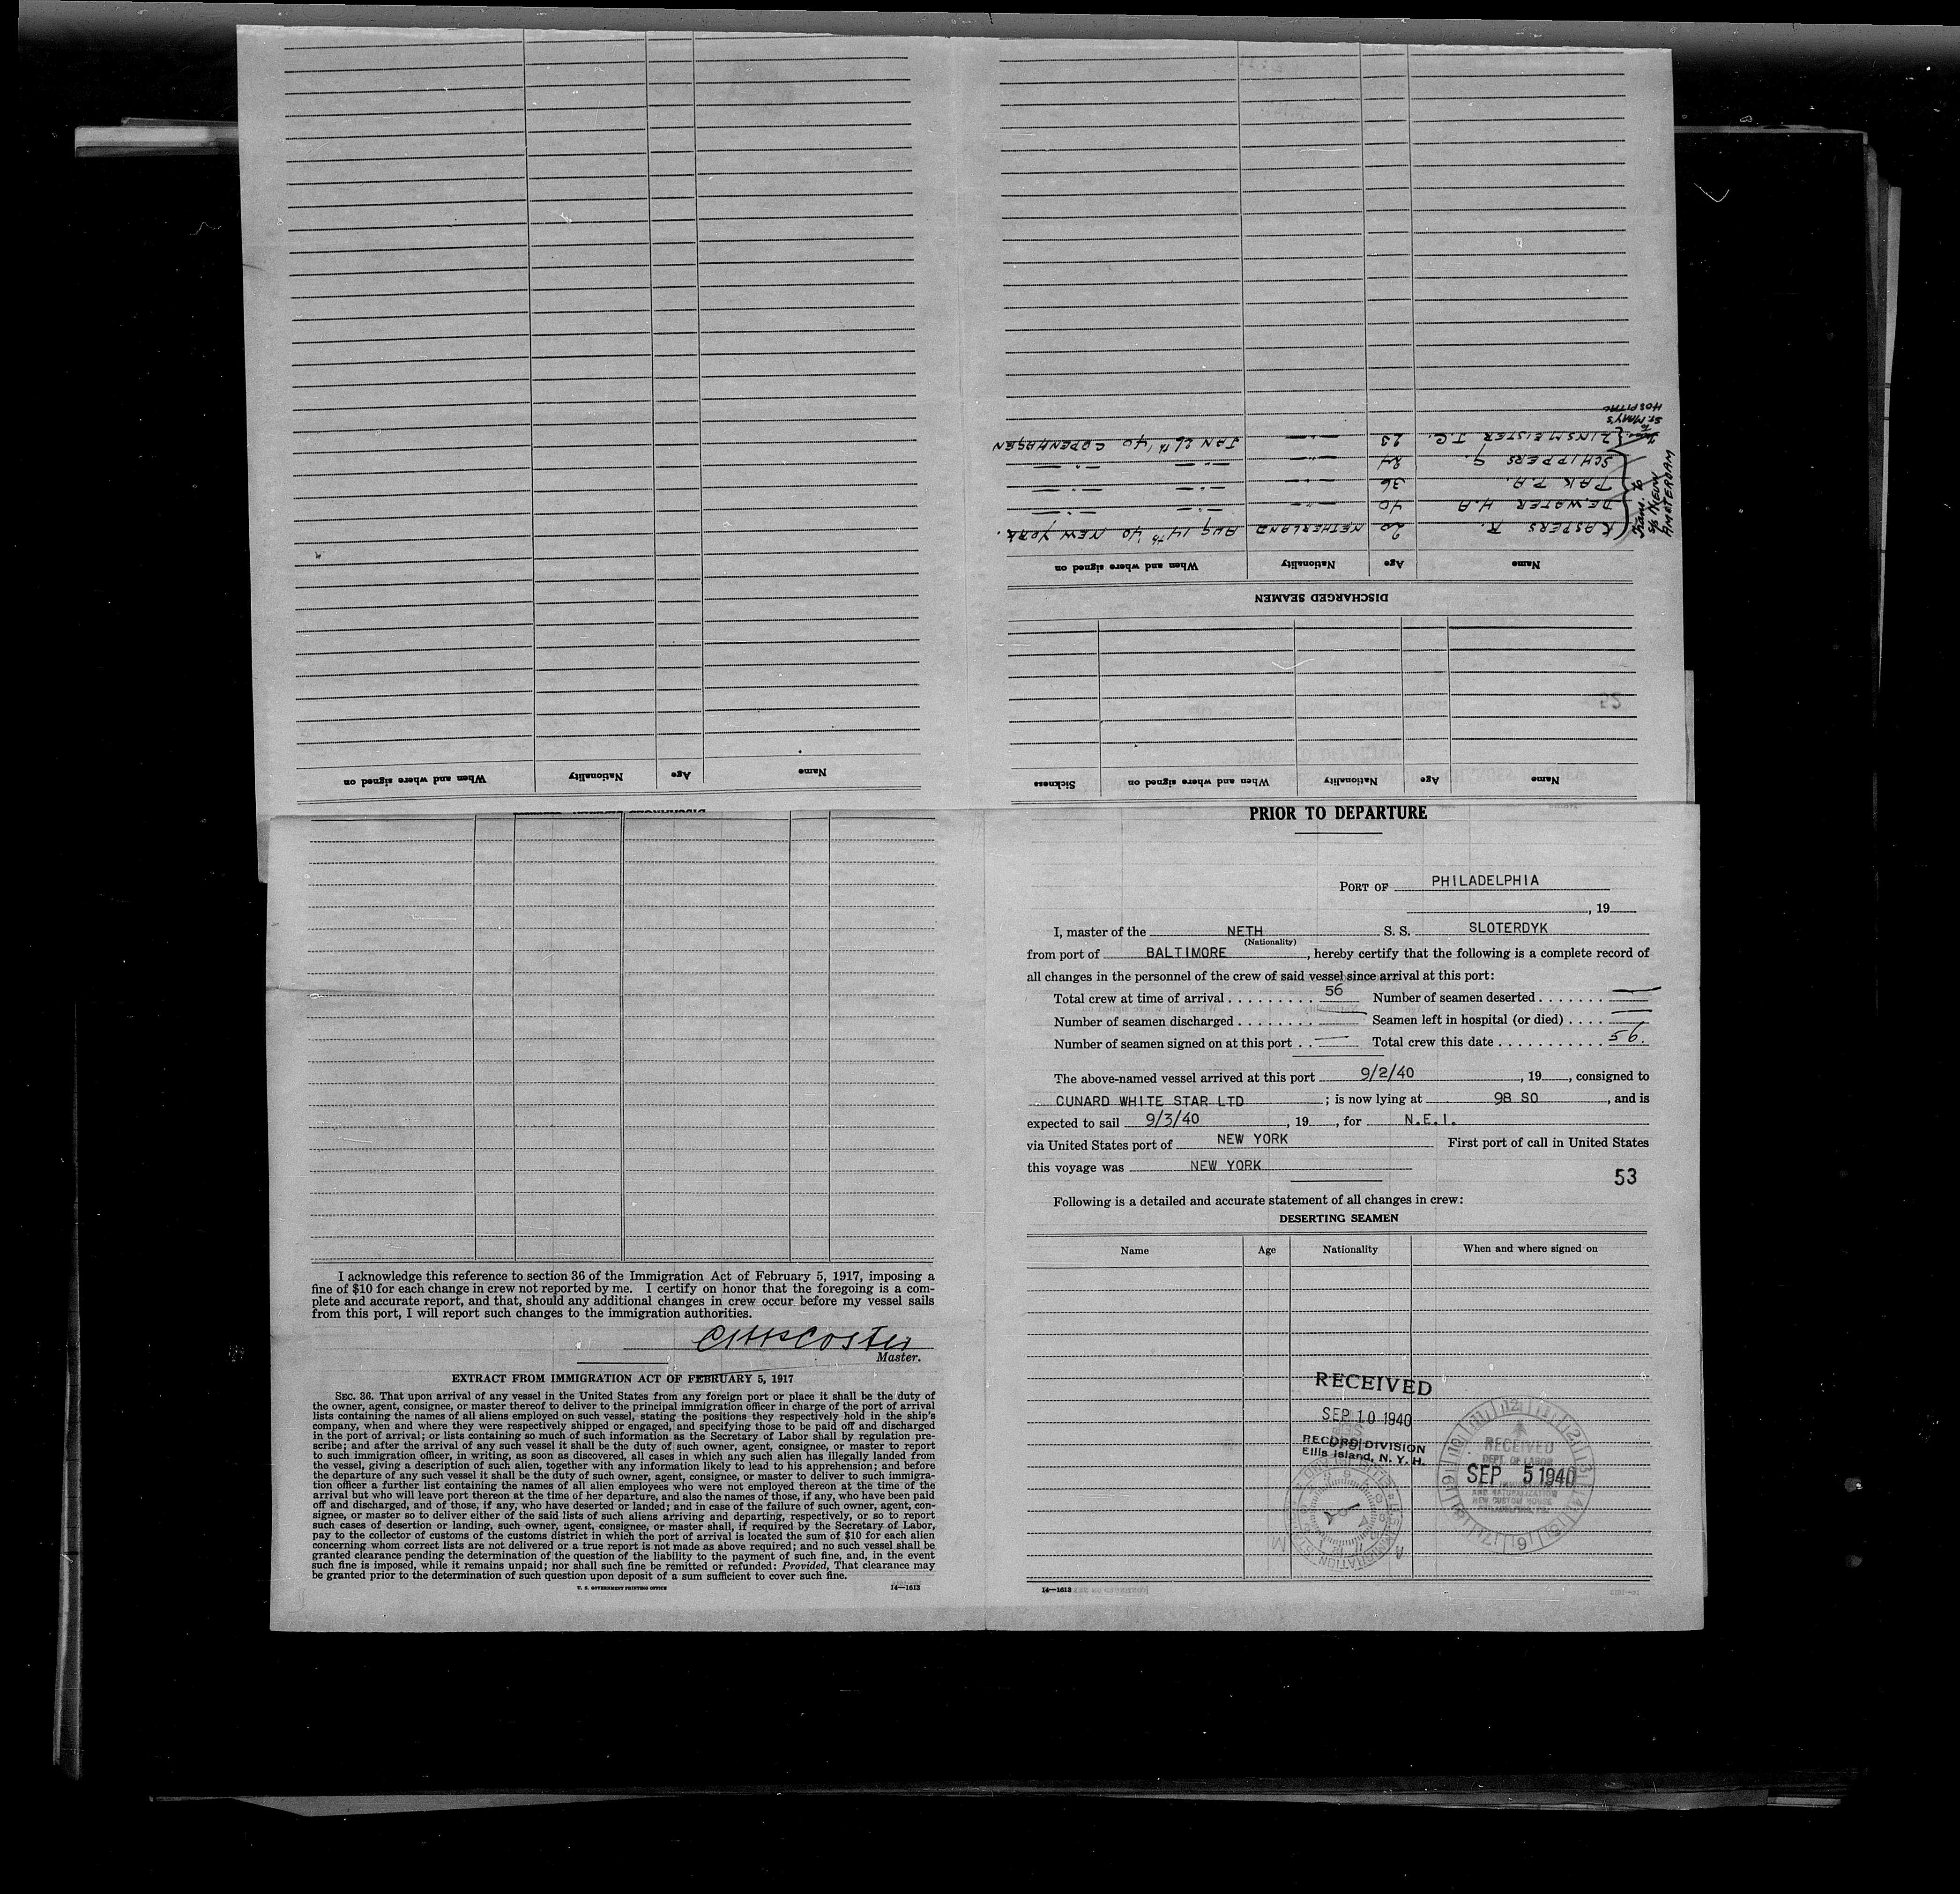 Name Age Nationality When and where signed on Sickness
DISCHARGED SEAMEN
Name Age Nationality When and where signed on
KASPERS R. 20 NETHERLAND AUG 14th '40 NEW YORK.
DE WATER H.A 40 -"- -"- -"-
PAK P.A. 36 -"- -"- -"-
SCHIPPERS G. 24 -"- -"- -"-
LINSMEISTER J.C. 23 -"- JAN 26th '40 COPENHAGEN
Trans. to
S/S NIEUW
AMSTERDAM
Trans. to
ST. MARY'S
HOSPITAL
52
Name Age Nationality When and where signed on
PRIOR TO DEPARTURE
PORT OF PHILADELPHIA
, 19
I, master of the NETH S. S. SLOTERDYK
(Nationality)
from port of BALTIMORE, hereby certify that the following is a complete record of
all changes in the personnel of the crew of said vessel since arrival at this port:
Total crew at time of arrival . . . . . . . . . 56 Number of seamen deserted . . . . . . . —
Number of seamen discharged . . . . . . . . — Seamen left in hospital (or died) . . . . —
Number of seamen signed on at this port . . — Total crew this date . . . . . . . . . . . 56.
The above-named vessel arrived at this port 9/2/40, 19, consigned to
CUNARD WHITE STAR LTD; is now lying at 98 SO, and is
expected to sail 9/3/40, 19, for N.E.I.
via United States port of NEW YORK First port of call in United States
this voyage was NEW YORK
53
Following is a detailed and accurate statement of all changes in crew:
DESERTING SEAMEN
Name Age Nationality When and where signed on
RECEIVED
SEP 10 1940
RECORD DIVISION
Ellis Island, N. Y. H.
RECEIVED
DEPT. OF LABOR
SEP 5 1940
IMMIGRATION
AND NATURALIZATION
NEW CUSTOM HOUSE
PHILADELPHIA, PA.
14—1613
I acknowledge this reference to section 36 of the Immigration Act of February 5, 1917, imposing a
fine of $10 for each change in crew not reported by me. I certify on honor that the foregoing is a com-
plete and accurate report, and that, should any additional changes in crew occur before my vessel sails
from this port, I will report such changes to the immigration authorities.
Master.
EXTRACT FROM IMMIGRATION ACT OF FEBRUARY 5, 1917
SEC. 36. That upon arrival of any vessel in the United States from any foreign port or place it shall be the duty of
the owner, agent, consignee, or master thereof to deliver to the principal immigration officer in charge of the port of arrival
lists containing the names of all aliens employed on such vessel, stating the positions they respectively hold in the ship's
company, when and where they were respectively shipped or engaged, and specifying those to be paid off and discharged
in the port of arrival; or lists containing so much of such information as the Secretary of Labor shall by regulation pre-
scribe; and after the arrival of any such vessel it shall be the duty of such owner, agent, consignee, or master to report
to such immigration officer, in writing, as soon as discovered, all cases in which any such alien has illegally landed from
the vessel, giving a description of such alien, together with any information likely to lead to his apprehension; and before
the departure of any such vessel it shall be the duty of such owner, agent, consignee, or master to deliver to such immigra-
tion officer a further list containing the names of all alien employees who were not employed thereon at the time of the
arrival but who will leave port thereon at the time of her departure, and also the names of those, if any, who have been paid
off and discharged, and of those, if any, who have deserted or landed; and in case of the failure of such owner, agent, con-
signee, or master so to deliver either of the said lists of such aliens arriving and departing, respectively, or so to report
such cases of desertion or landing, such owner, agent, consignee, or master shall, if required by the Secretary of Labor,
pay to the collector of customs of the customs district in which the port of arrival is located the sum of $10 for each alien
concerning whom correct lists are not delivered or a true report is not made as above required; and no such vessel shall be
granted clearance pending the determination of the question of the liability to the payment of such fine, and, in the event
such fine is imposed, while it remains unpaid; nor shall such fine be remitted or refunded: Provided, That clearance may
be granted prior to the determination of such question upon deposit of a sum sufficient to cover such fine.
U. S. GOVERNMENT PRINTING OFFICE 14—1613